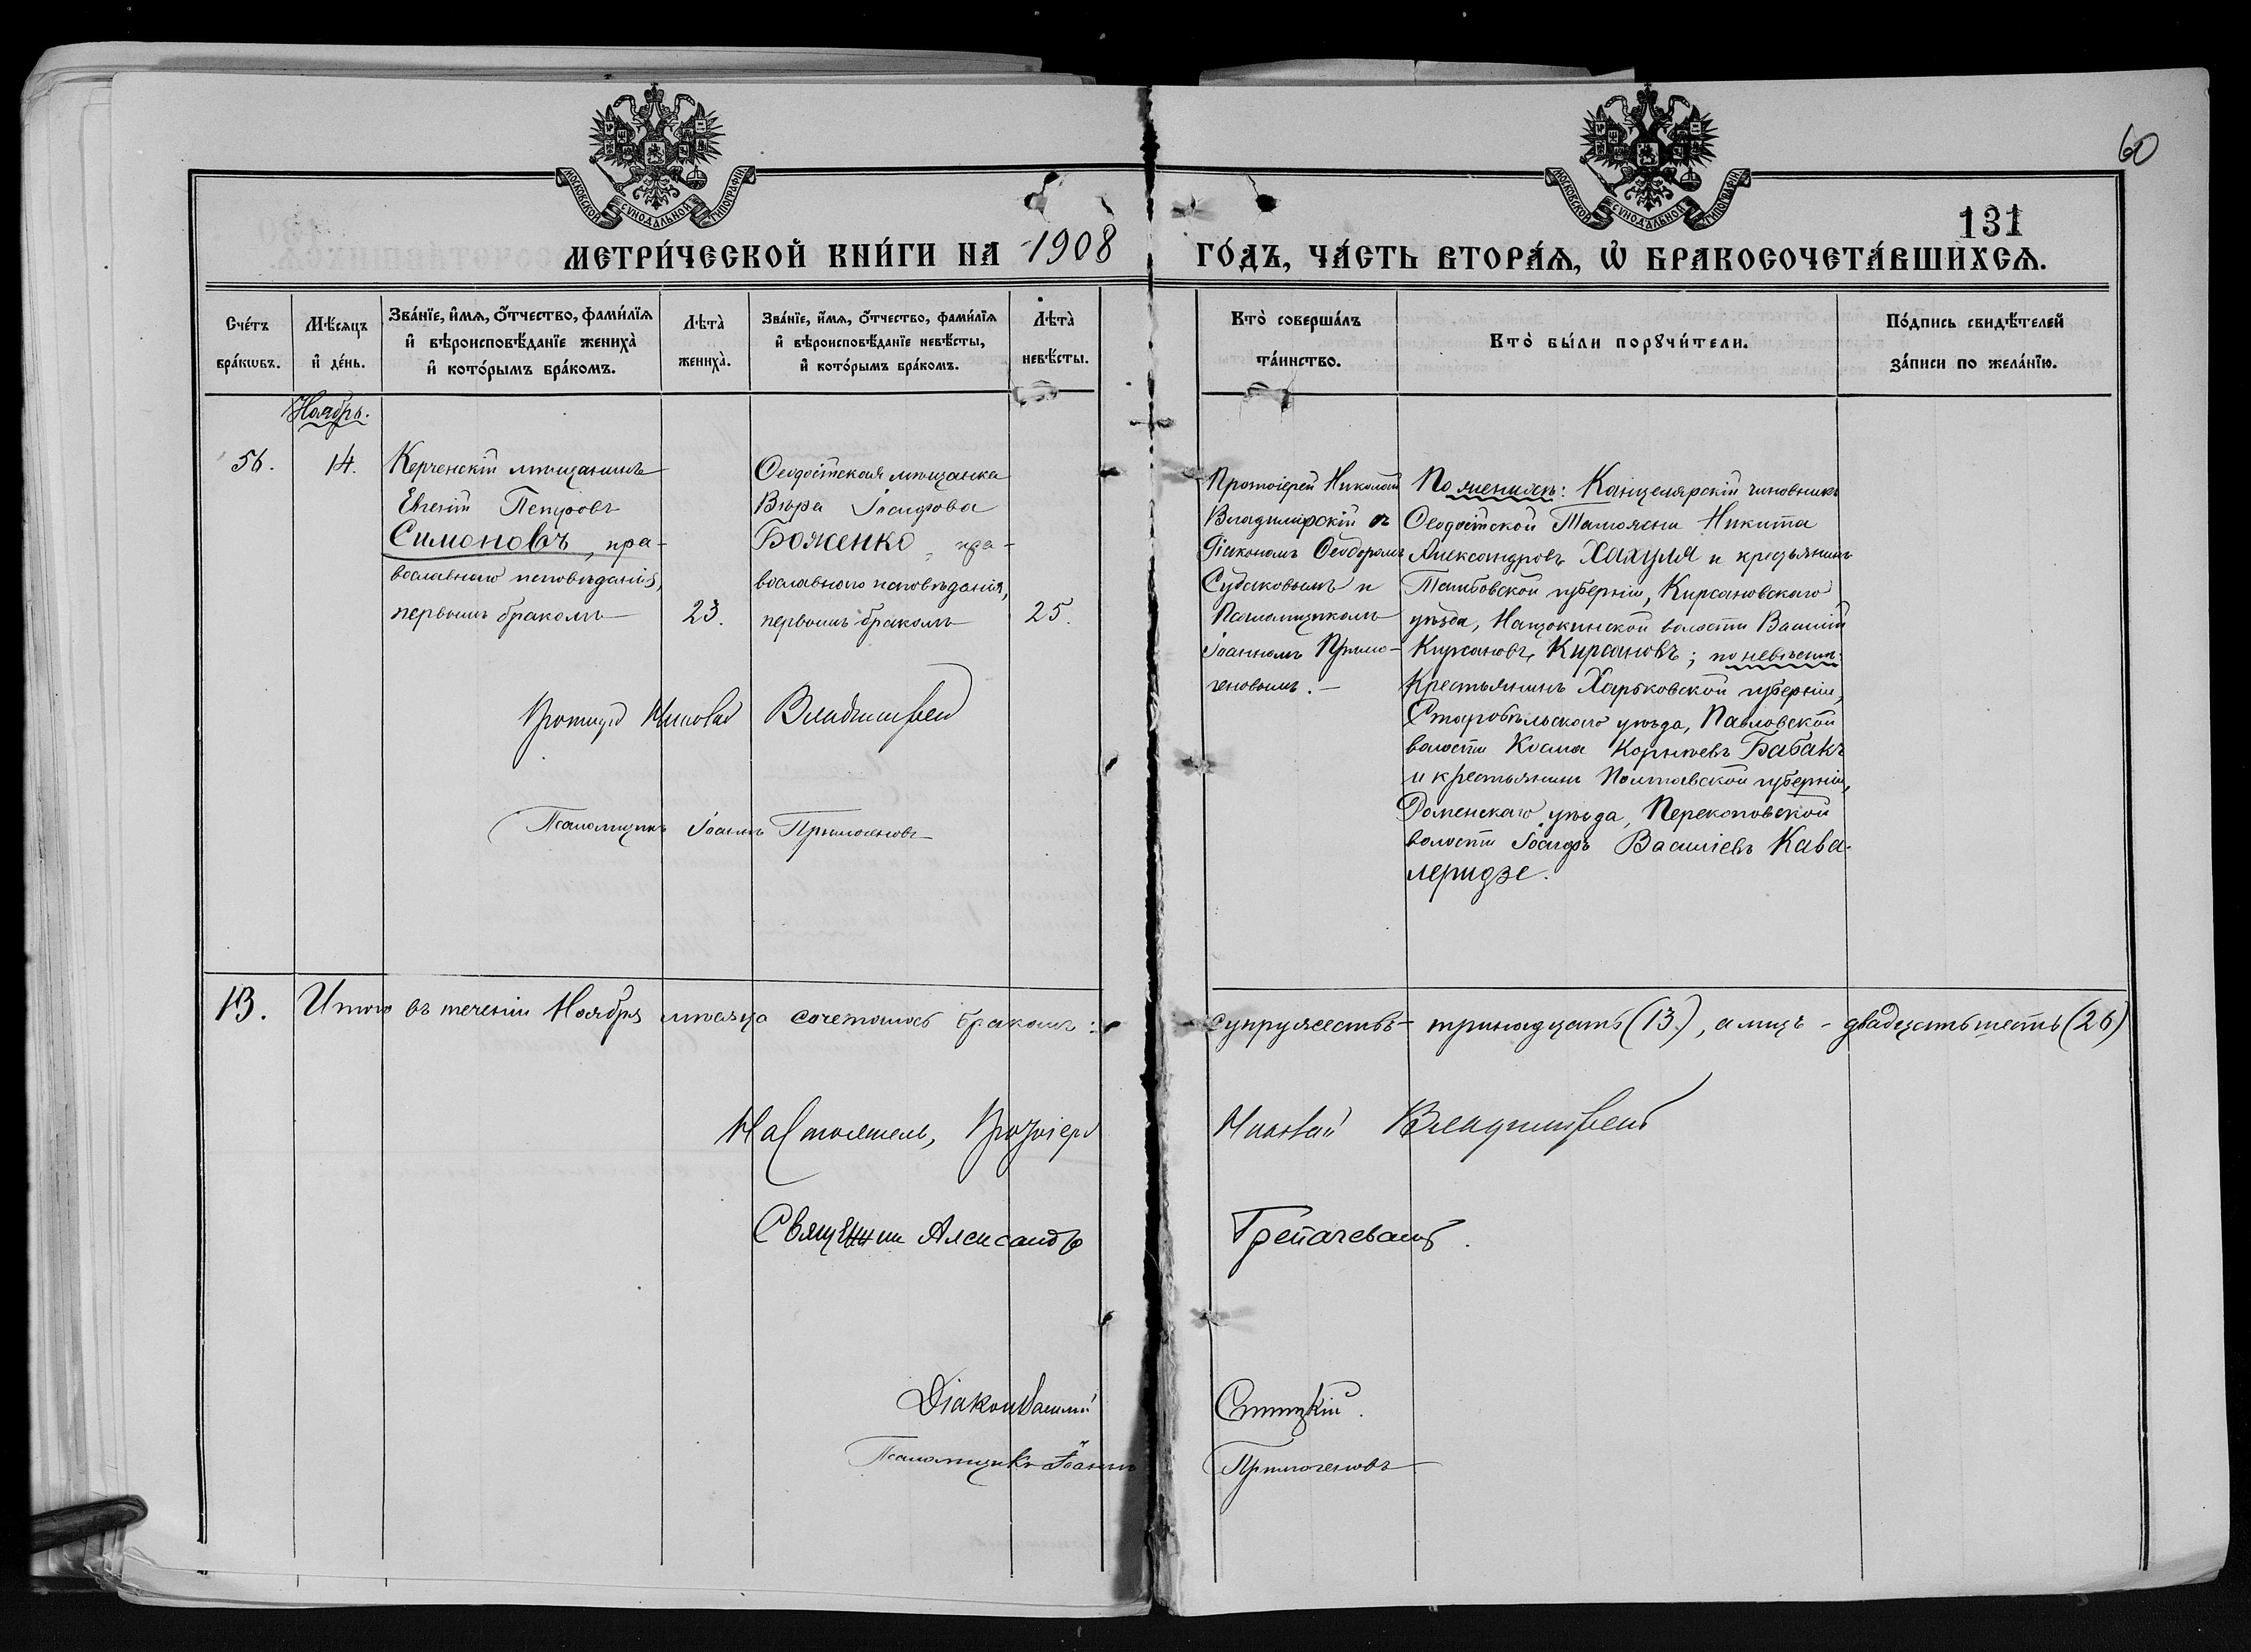 60
131
МОСКОВСКОЙ СѴНОДАЛЬНОЙ ТИПОГРАФІИ
МОСКОВСКОЙ СѴНОДАЛЬНОЙ ТИПОГРАФІИ
МЕТРИ́ЧЕСКОЙ КНИ́ГИ НА 1908 ГО́ДЪ, ЧА́СТЬ ВТОРА́Я, Ѡ҆ БРАКОСОЧЕТА́ВШИХСЯ.
Сче́тъ бра́кѡвъ.
Мѣ́сяцъ и҆ де́нь.
Зва́нїе, и҆́мя, ѻ҆́тчество, фами́лїя и҆ вѣроисповѣ́данїе жениха̀ и҆ кото́рымъ бра́комъ.
Лѣта̀ жениха̀.
Зва́нїе, и҆́мя, ѻ҆́тчество, фами́лїя и҆ вѣроисповѣ́данїе невѣ́сты, и҆ кото́рымъ бра́комъ.
Лѣта̀ невѣ́сты.
Кто̀ соверша́лъ та́инство.
Кто̀ бы́ли порꙋчи́тели.
По́дпись свидѣ́телей за́писи по жела́нїю.
Ноябрь.
56.
14.
Керченскій мѣщанинъ
Евгеній Петровъ
Симоновъ, пра-
вославнаго исповѣданія,
первымъ бракомъ
23.
Ѳеодосійская мѣщанка
Вѣра Іосифова
Боженко, пра-
вославнаго исповѣданія,
первымъ бракомъ
25.
Протоіерей Николай
Владимірскій съ
Діакономъ Ѳеодоромъ
Судаковымъ и
Псаломщикомъ
Іоанномъ Примо-
геновымъ.
По женихѣ: Канцелярскій чиновникъ
Ѳеодосійской Таможни Никита
Александровъ Хахуля и крестьянинъ
Тамбовской губерніи, Кирсановскаго
уѣзда, Нащокинской волости Василій
Кирсановъ Кирсановъ; по невѣстѣ:
Крестьянинъ Харьковской губерніи,
Старобѣльскаго уѣзда, Павловской
волости Косма Корніевъ Бабакъ
и крестьянинъ Полтавской губерніи,
Роменскаго уѣзда, Перекоповской
волости Іосифъ Василіевъ Кава-
леридзе.
Протоіер Николай Владимірскій
Псаломщикъ Іоаннъ Примогеновъ
13. Итого въ теченіи Ноября мѣсяца сочеталось бракомъ: супружествъ - тринадцать (13), а лицъ - двадцать шесть (26)
Настоятель, Протоіерей Николай Владимірскій
Священник Александръ
Діаконъ Василій
Псаломщикъ Іоаннъ Примогеновъ